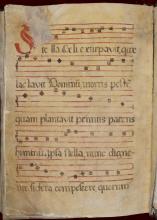 Stella celi extirpavit que
lactavit Dominum mortis peste
quam plantavit primus parens
hominum. Ipsa stella nunc digne
tur sidera compescere quorum